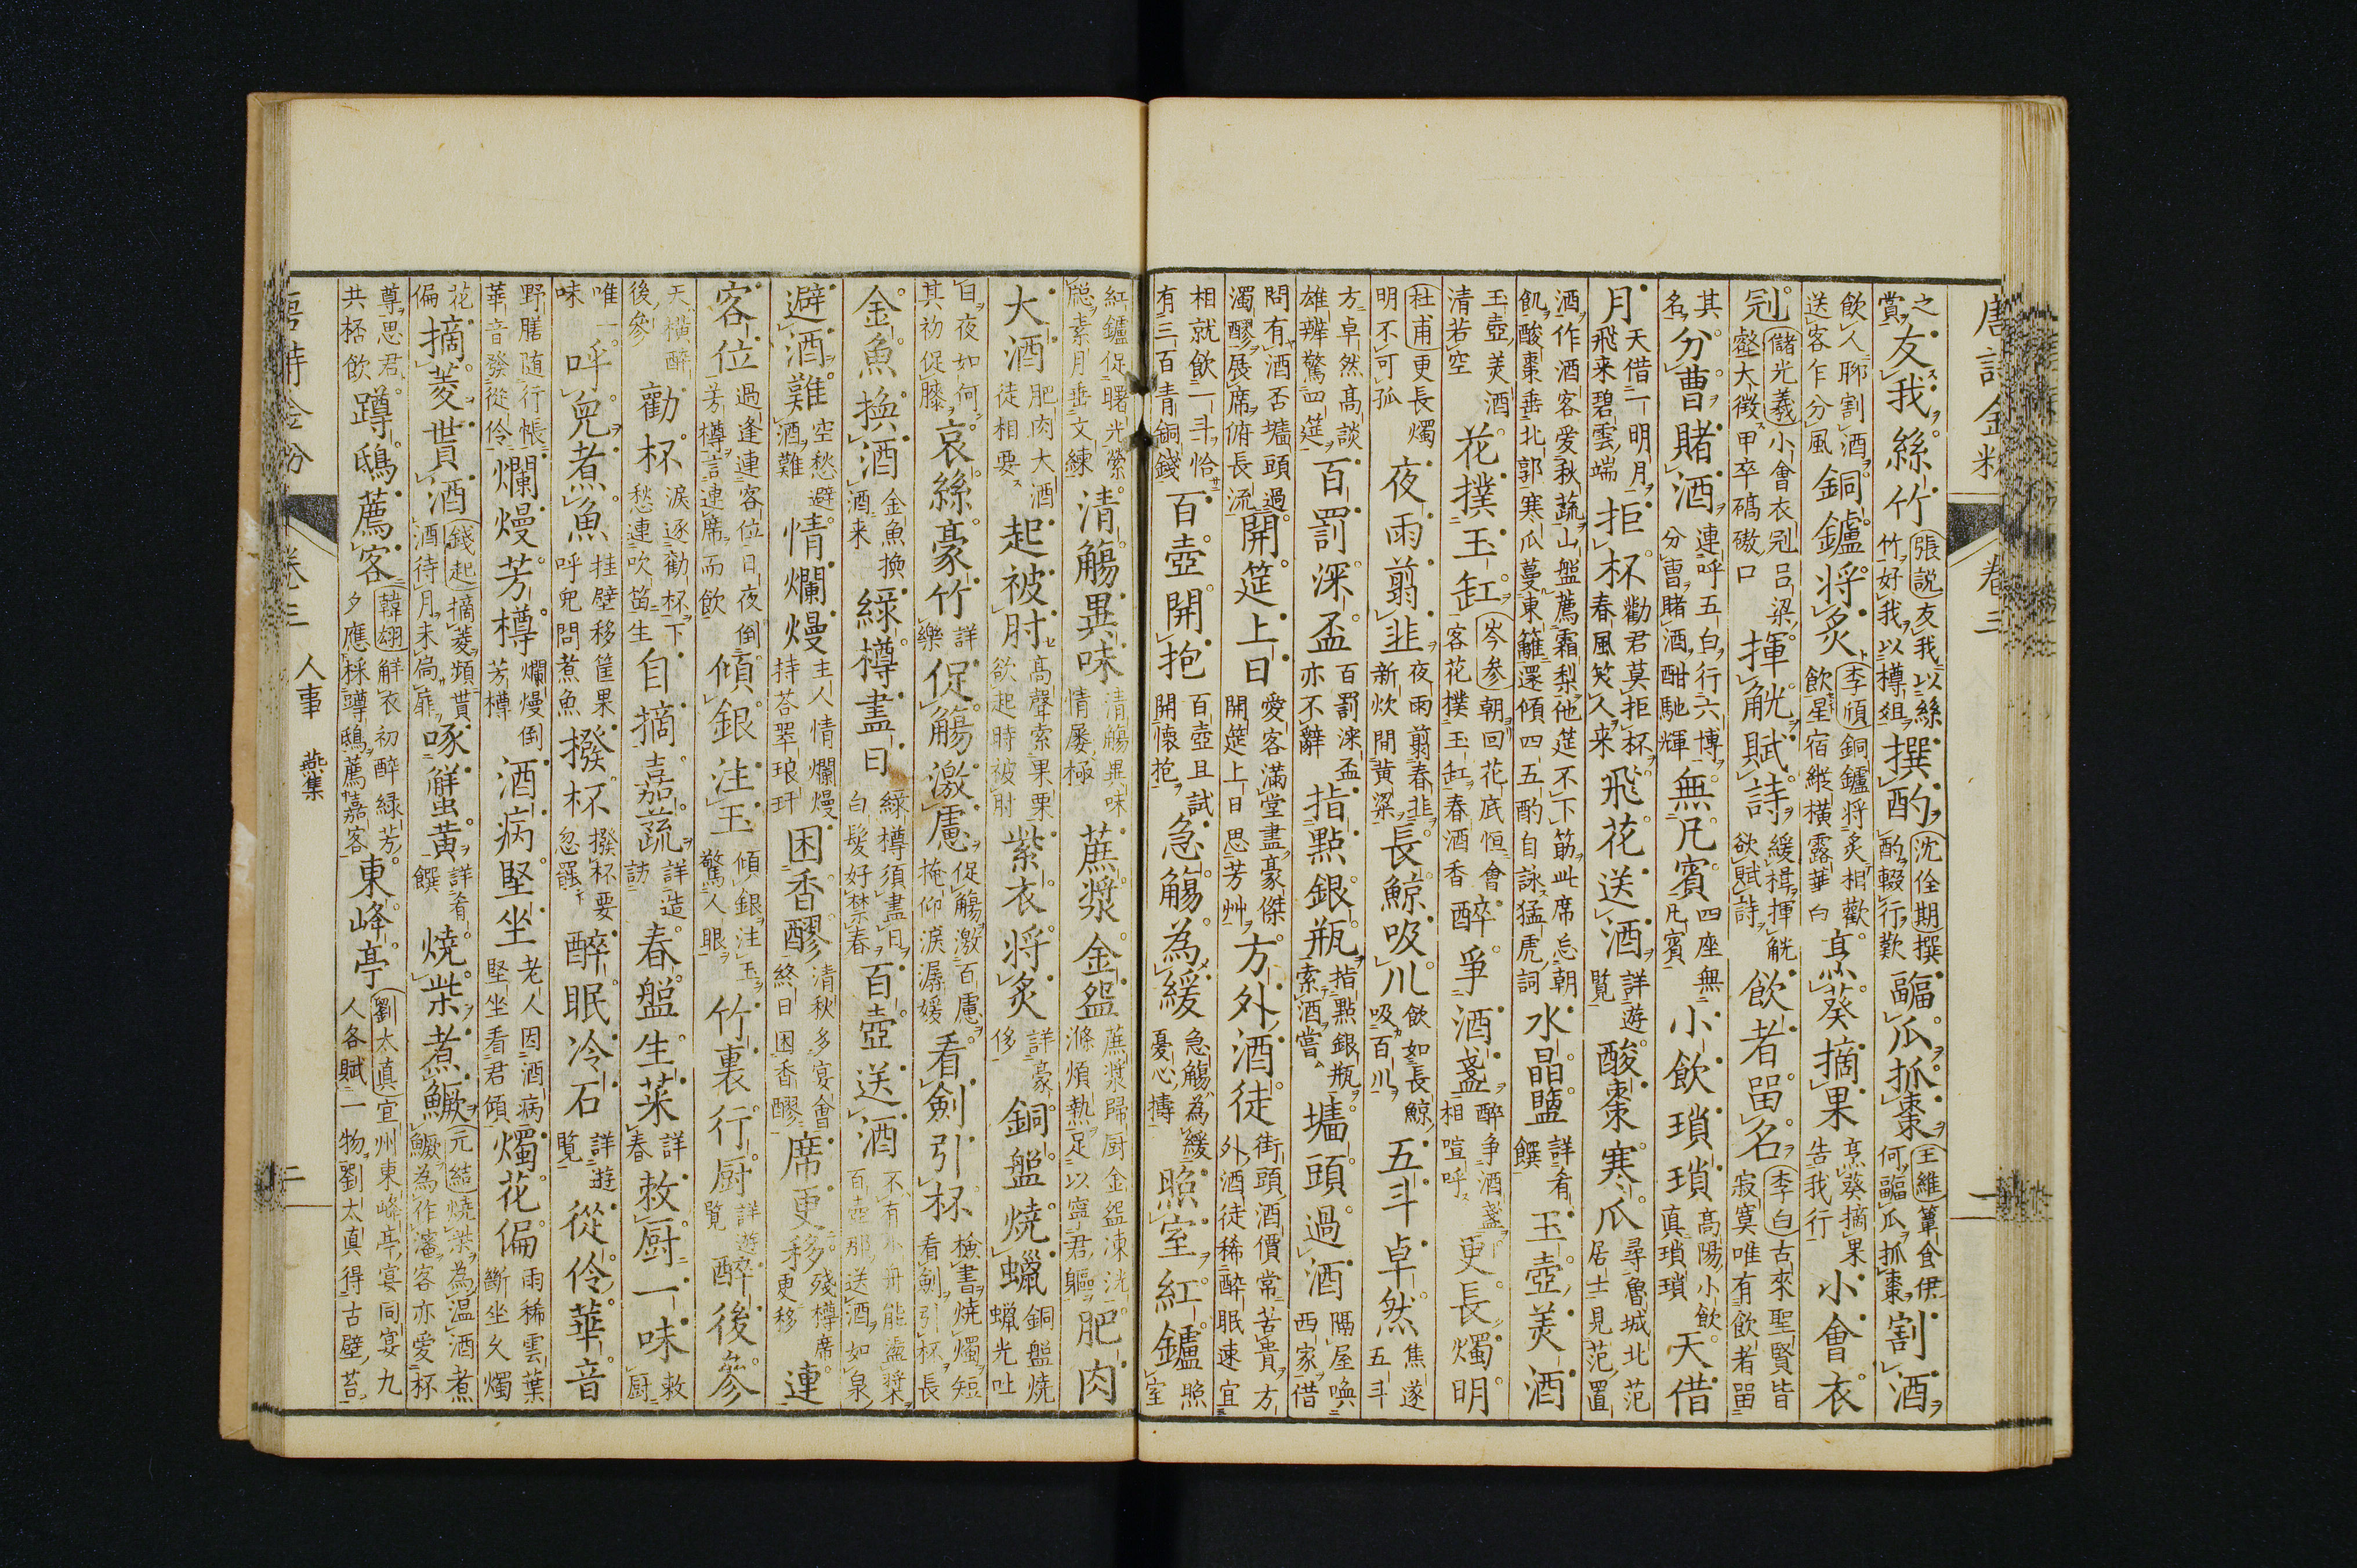 唐詩金粉 卷三 一
之賞友我絲竹張説友我以絲竹好我以樽俎撰酌沈佺期撰酌輟行歎副瓜抓棗王維簞食伊何副瓜抓棗割酒
飲人聊割酒送客乍分風銅鑪將炙李頎銅鑪將炙相歡飲星宿縱橫露華白烹葵摘果烹葵摘果告我行小會衣
冠儲光羲小會衣冠呂梁壑大徴甲卒碻磝口揮觥賦詩緩楫揮觥欲賦詩飲者畱名李白古來聖賢皆寂寞唯有飲者畱
其名分曹賭酒連呼五白行六博分曹賭酒酣馳輝無凡賓四座無凡賓小飲瑣瑣高陽小飲真瑣瑣天借
月天借一明月飛来碧雲端拒杯勸君莫拒杯春風笑人来飛花送酒詳遊覧酸棗寒瓜尋魯城北范居士見范置
酒作酒客愛秋蔬山盤薦霜梨他筵不下筯此席忘朝飢酸棗垂北郭寒瓜蔓東籬還傾四五酌自詠猛虎詞水晶鹽詳肴饌玉壺美酒
玉壺美酒清若空花撲玉缸岑参朝回花底恒會客花撲玉缸春酒香醉爭酒盞醉争酒盞相喧呼更長燭明
杜甫更長燭明不可孤夜雨翦韭夜雨翦春韭新炊間黄粱長鯨吸川飲如長鯨吸百川五斗卓然焦遂五斗
方卓然高談雄辨驚四筵百罰深盃百罰深盃亦不辭指點銀瓶指點銀瓶索酒嘗墻頭過酒隔屋喚西家借
問有酒否墻頭過濁醪展席俯長流開筵上日愛客滿堂盡豪傑開筵上日思芳艸方外酒徒街頭酒價常苦貴方外酒徒稀醉眠速宜
相就飲一斗恰有三百青銅錢百壺開抱百壺且試開懷抱急觴為緩急觴為緩憂心擣照室紅鑪照室
紅鑪促曙光縈牕素月垂文練清觴異味清觴異味情屡極蔗漿金盌蔗漿歸厨金盌凍洗滌煩熱足以寧君軀肥肉
大酒肥肉大酒徒相要起被肘高聲索果栗欲起時被肘紫衣将炙詳豪侈銅盤燒蠟銅盤焼蠟光吐
日夜如何其初促膝哀絲豪竹詳樂促觴激慮促觴激百慮掩仰淚潺湲看劍引杯檢書燒燭短看劍引杯長
金魚換酒金魚換酒来緑樽盡日緑樽須盡日白髪好禁春百壺送酒不有小舟能盪槳百壺那送酒如泉
避酒難空愁避酒難情爛熳主人情爛熳持荅翠琅玕困香醪清秋多宴會終日困香醪席更移殘樽席更移連
客位過逢連客位日夜倒芳樽言連席而飲傾銀注玉傾銀注玉驚人眼竹裏行厨詳遊覧醉後參
天横醉後參勸杯淚逐勸杯下愁連吹笛生自摘嘉蔬詳造訪春盤生菜詳春敕厨一味敕厨
唯一味呼兒煮魚挂壁移筐果呼兒問煮魚撥杯撥杯要忽罷醉眠冷石詳遊覧從伶華音
野膳随行帳華音發從伶爛熳芳樽爛熳倒芳樽酒病堅坐老人因酒病堅坐看君傾燭花偏雨稀雲葉斷坐久燭
花偏摘菱貰酒錢起摘菱頻貰酒待月未扃扉啄蟹黄詳肴饌燒柴煮鱖元結燒柴為温酒煮鱖為作瀋客亦愛杯
尊思君共桮飲蹲鴟薦客韓翃解衣初醉緑芳夕應採蹲鴟薦嘉客東峰亭劉太真宣州東峰亭宴同宴九人各賦一物劉太真得古壁苔
唐詩金粉 卷三 人事 燕集 二